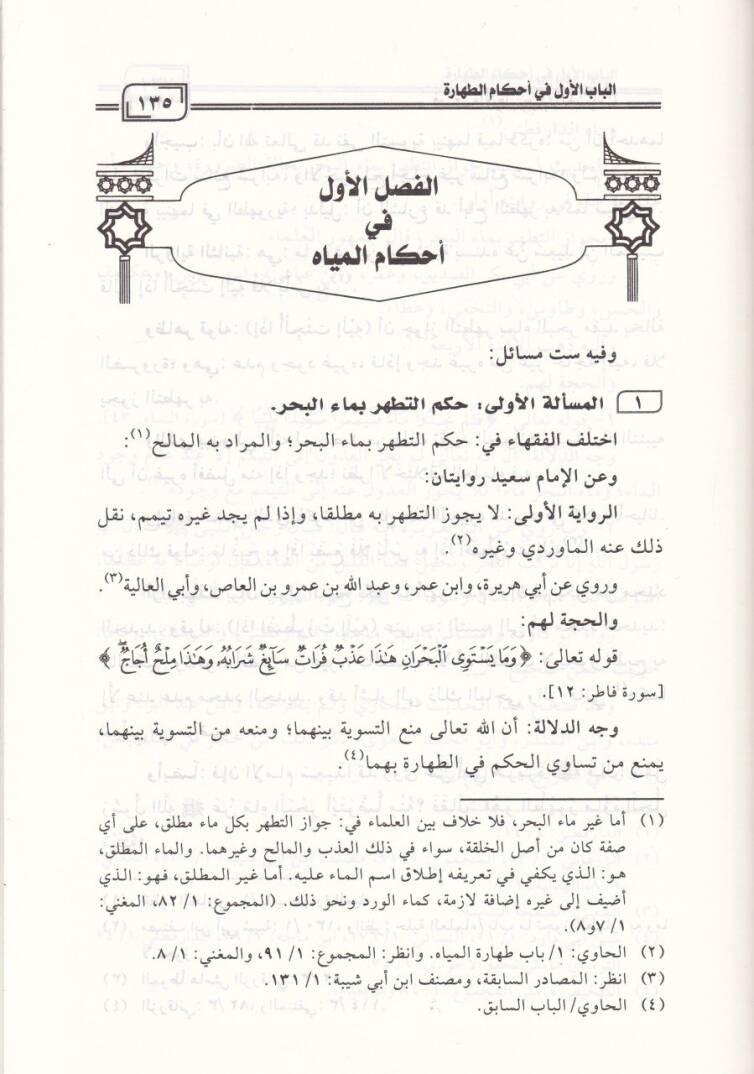 الباب الأول في أحكام الطهارة
١٣٥
الفصل الأول
في
أحكام المياه
وفيه ست مسائل:
١ المسألة الأولى: حكم التطهر بماء البحر.
اختلف الفقهاء في: حكم التطهر بماء البحر؛ والمراد به المالح(١):
وعن الإمام سعيد روايتان:
الرواية الأولى: لا يجوز التطهر به مطلقا، وإذا لم يجد غيره تيمم، نقل
ذلك عنه الماوردي وغيره(٢).
وروي عن أبي هريرة، وابن عمر، وعبد الله بن عمرو بن العاص، وأبي العالية(٣).
والحجة لهم:
قوله تعالى: ﴿ وَمَا يَسْتَوِى الْبَحْرَانِ هَٰذَا عَذْبٌ فُرَاتٌ سَآئِغٌ شَرَابُهُۥ وَهَٰذَا مِلْحٌ أُجَاجٌ ۖ ﴾
[سورة فاطر: ١٢].
وجه الدلالة: أن الله تعالى منع التسوية بينهما؛ ومنعه من التسوية بينهما،
يمنع من تساوي الحكم في الطهارة بهما(٤).
(١) أما غير ماء البحر، فلا خلاف بين العلماء في: جواز التطهر بكل ماء مطلق، على أي
صفة كان من أصل الخلقة، سواء في ذلك العذب والمالح وغيرهما. والماء المطلق،
هو: الذي يكفي في تعريفه إطلاق اسم الماء عليه. أما غير المطلق، فهو: الذي
أضيف إلى غيره إضافة لازمة، كماء الورد ونحو ذلك. (المجموع: ١/ ٨٢، المغني:
١/ ٧و٨).
(٢) الحاوي: ١/ باب طهارة المياه. وانظر: المجموع: ١/ ٩١، والمغني: ١/ ٨.
(٣) انظر: المصادر السابقة، ومصنف ابن أبي شيبة: ١/ ١٣١.
(٤) الحاوي/ الباب السابق.